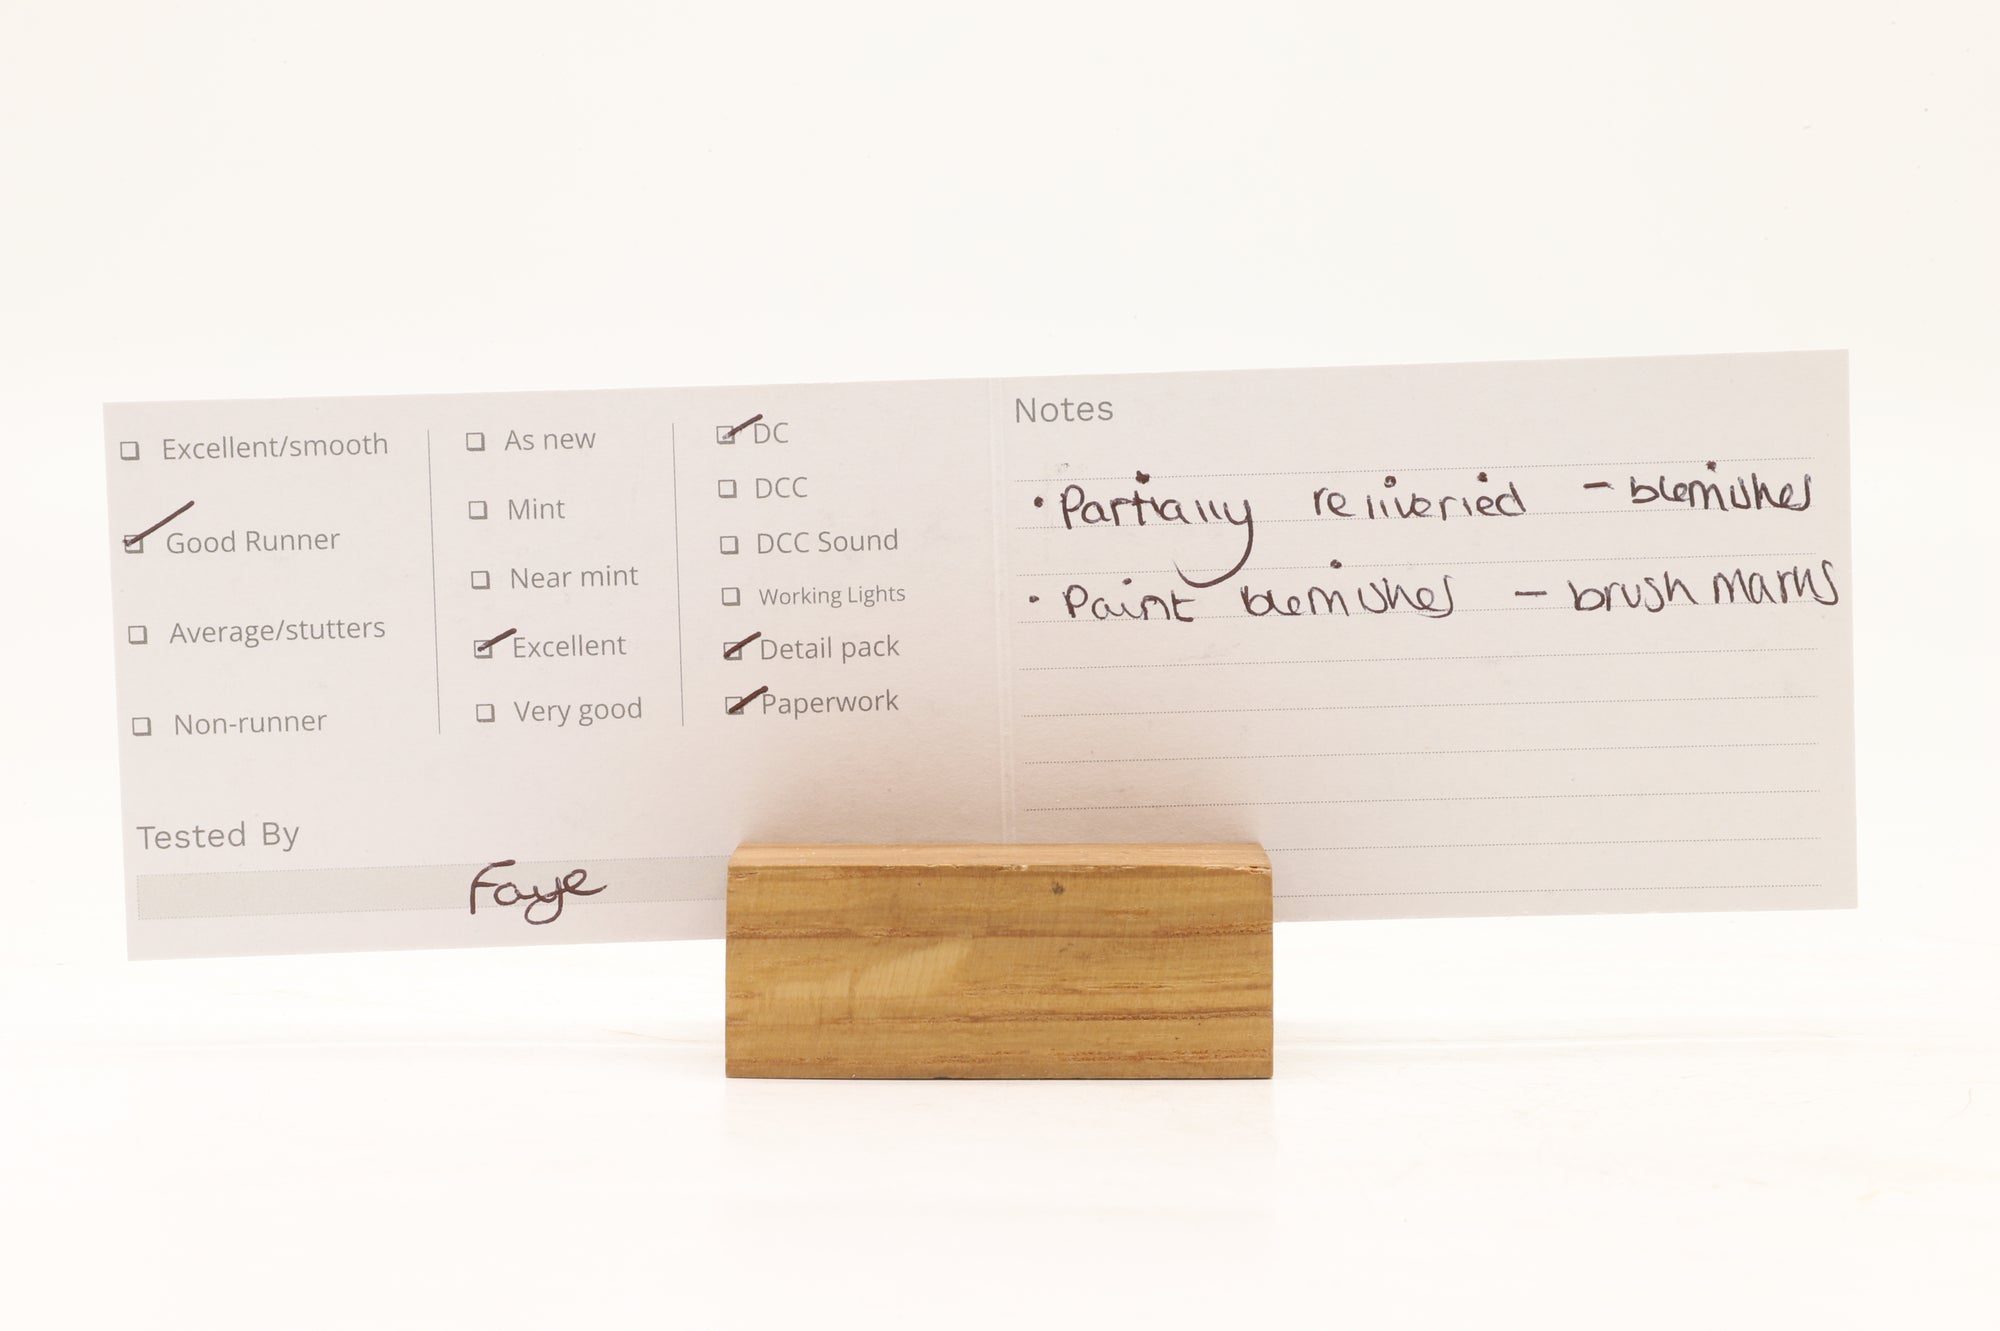 Excellent/smooth
Good Runner
Average/stutters
Non-runner
As new
Mint
Near mint
Excellent
Very good
DC
DCC
DCC Sound
Working Lights
Detail pack
Paperwork
Tested By
Faye
Notes
• Partially reliveried - blemishes
• Paint blemishes - brush marks